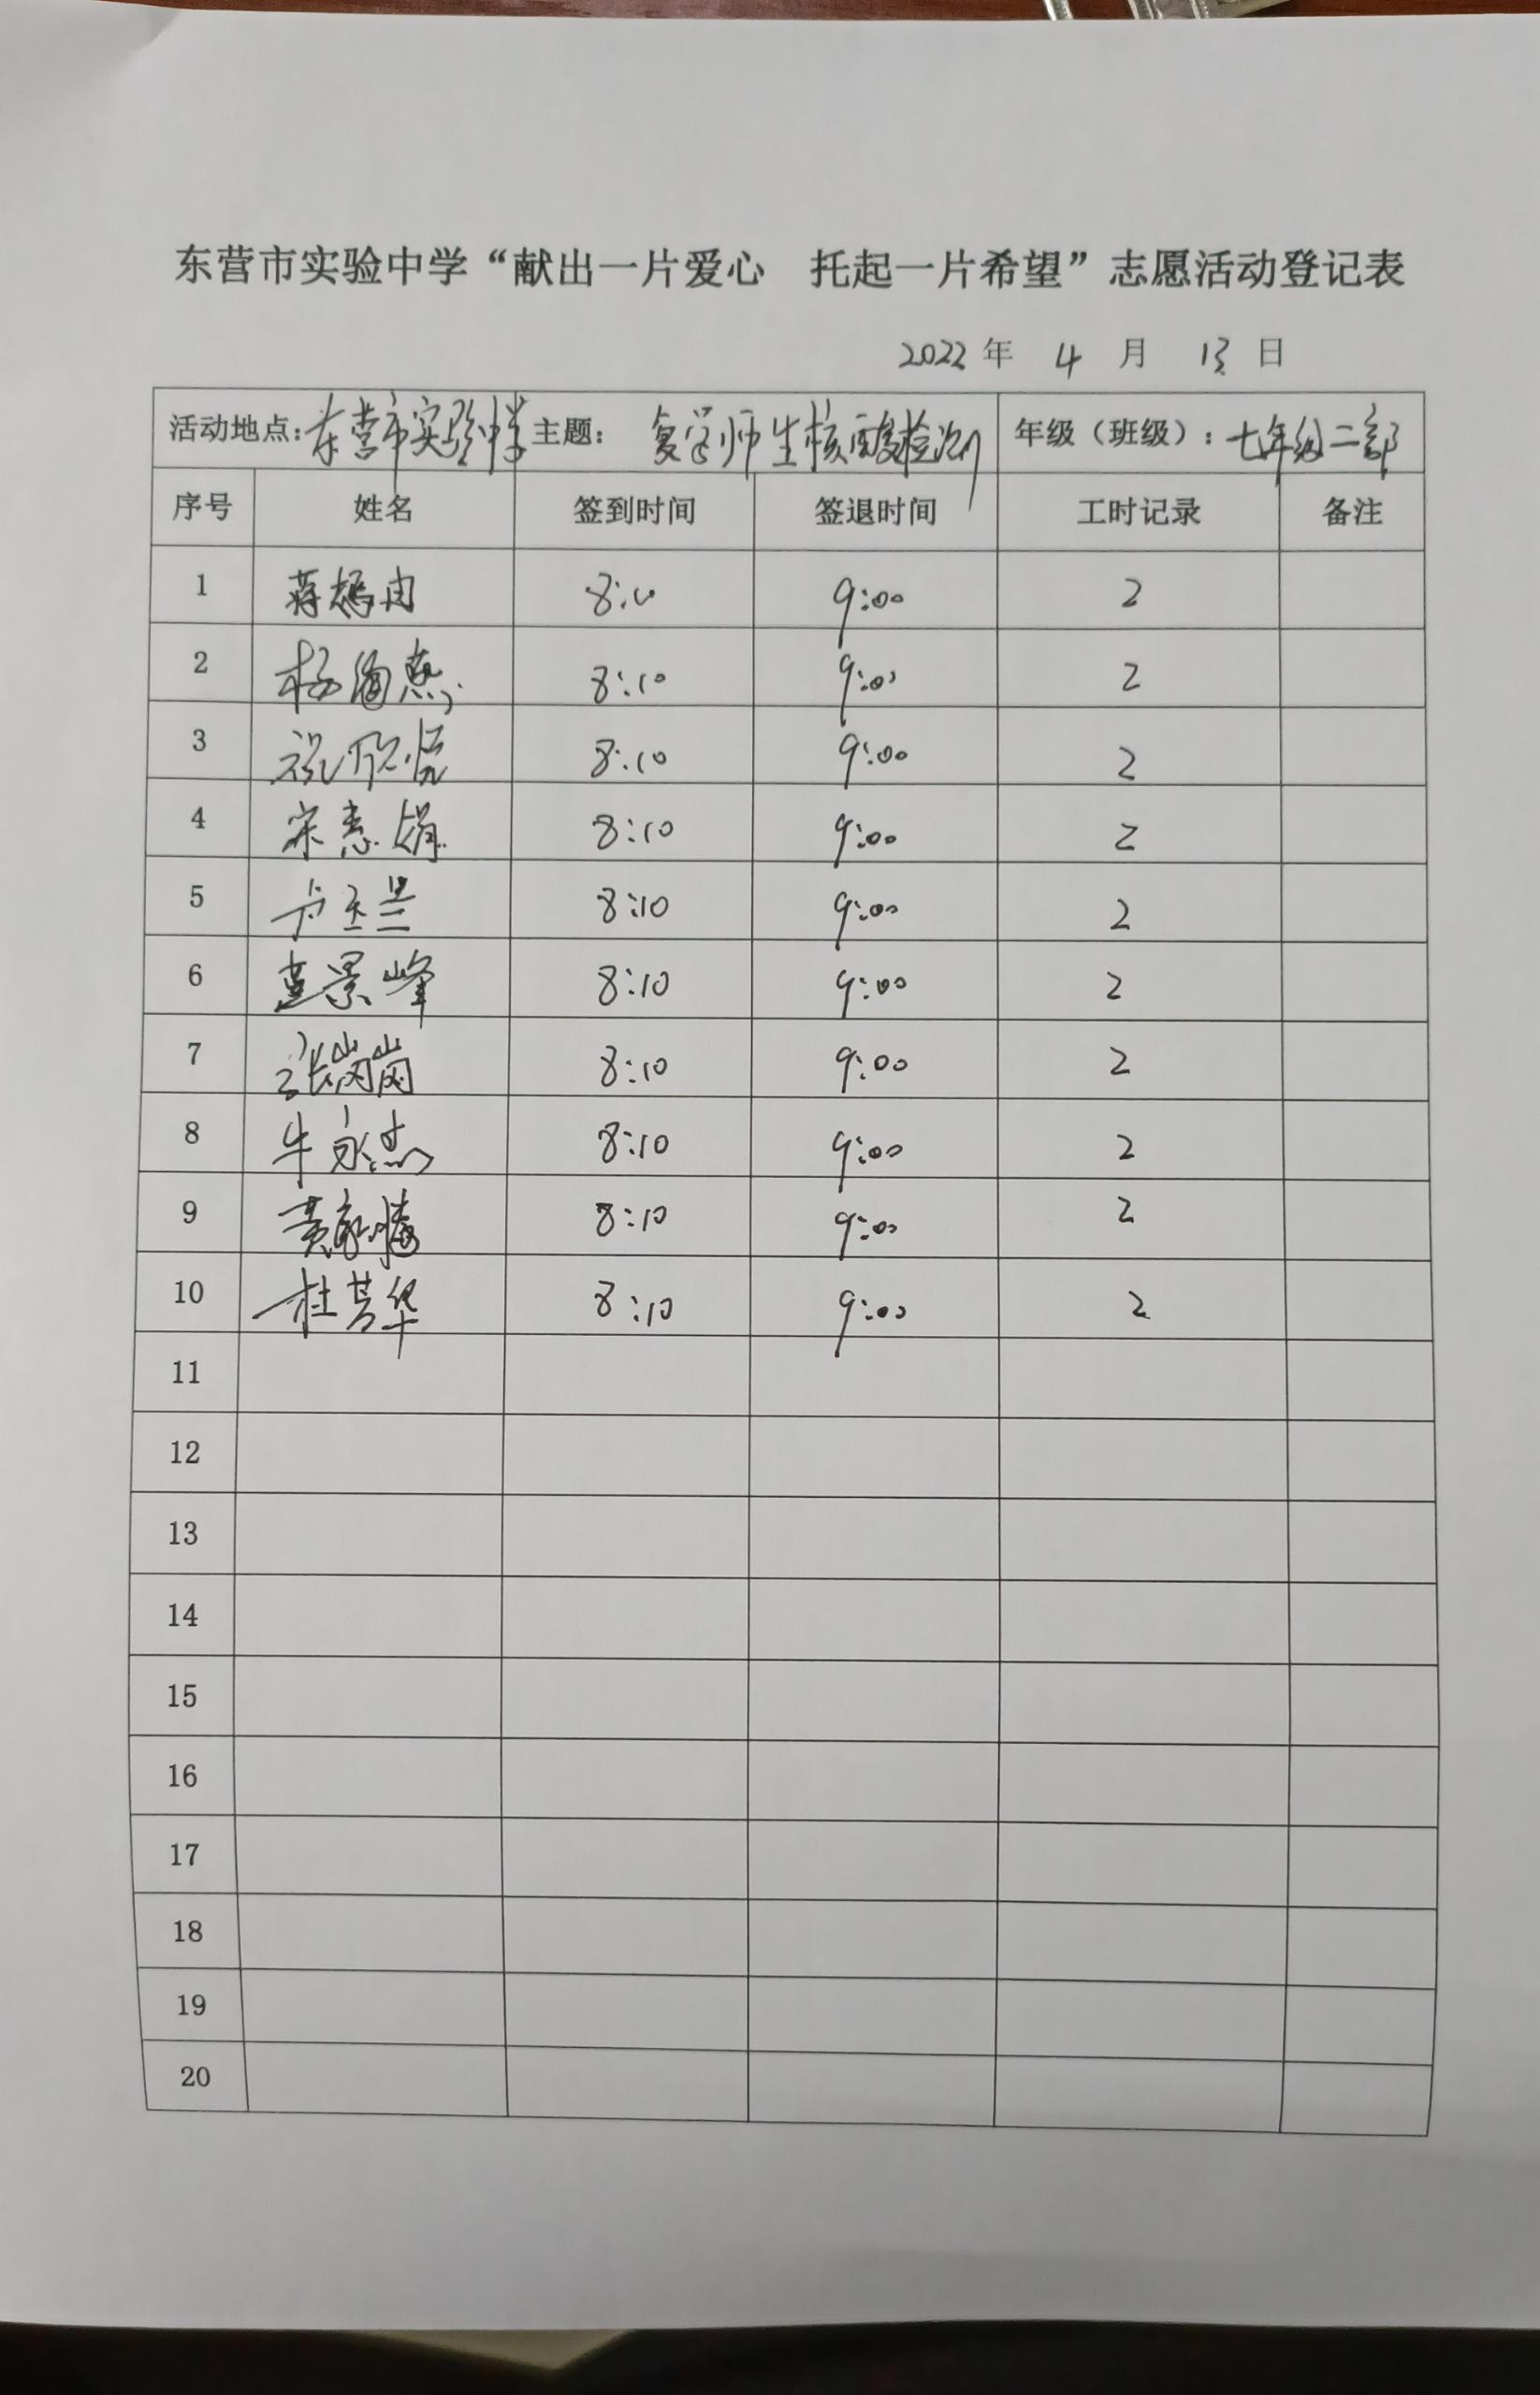 东营市实验中学“献出一片爱心 托起一片希望”志愿活动登记表
2022 年 4 月 13 日
活动地点：东营市实验中学 主题： 复学师生核酸检测 年级（班级）：七年级二部
序号 姓名 签到时间 签退时间 工时记录 备注
1 蒋 冉 8:10 9:00 2
2 杨 燕 8:10 9:00 2
3 祝欣悦 8:10 9:00 2
4 宋素娟 8:10 9:00 2
5 卢玉兰 8:10 9:00 2
6 盖景峰 8:10 9:00 2
7 张岗岗 8:10 9:00 2
8 牛永杰 8:10 9:00 2
9 黄 8:10 9:00 2
10 杜芳华 8:10 9:00 2
11
12
13
14
15
16
17
18
19
20